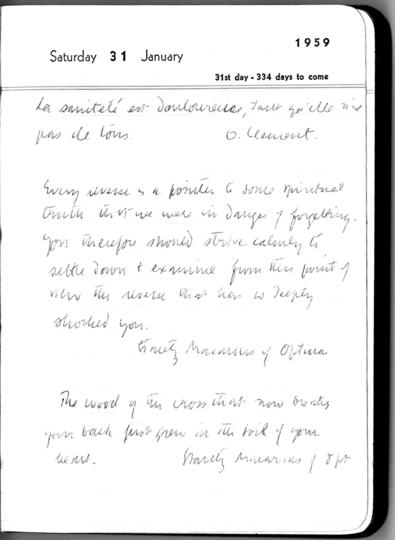 1959
Saturday 31 January
31st day - 334 days to come
La sainteté est douloureuse, tant qu'elle n'est
pas de tous. O. Clément.
Every reverse is a pointer to some spiritual
truth that we were in danger of forgetting.
You therefore should strive calmly to
settle down & examine from this point of
view the reverse that has so deeply
shocked you.
Staretz Macarius of Optina
The wood of the cross that now breaks
your back first grew in the soil of your
heart. Staretz Macarius of Opt